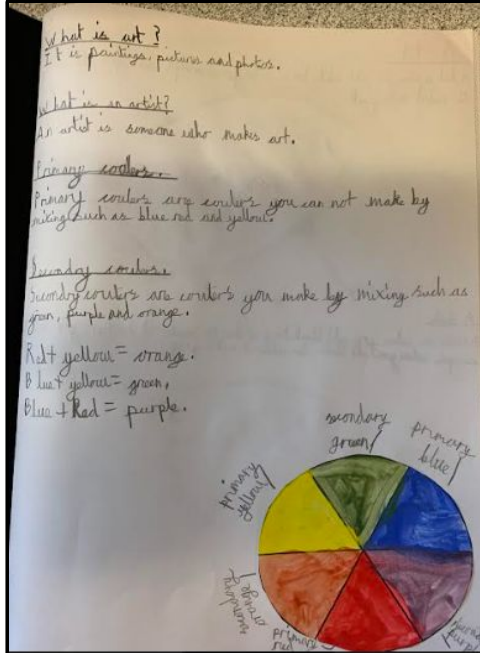 What is art?
It is paintings, pictures and photos.
What is an artist?
An artist is someone who makes art.
Primary coulers.
Primary coulers are coulers you can not make by
mixing such as blue red and yellow.
Secondry coulers.
Secondry coulers are coulers you make by mixing such as
green, purple and orange.
Red + yellow = orange.
Blue + yellow = green.
Blue + Red = purple.
secondary
green
primary
blue
primary
yellow
secondary
orange
primary
red
purple